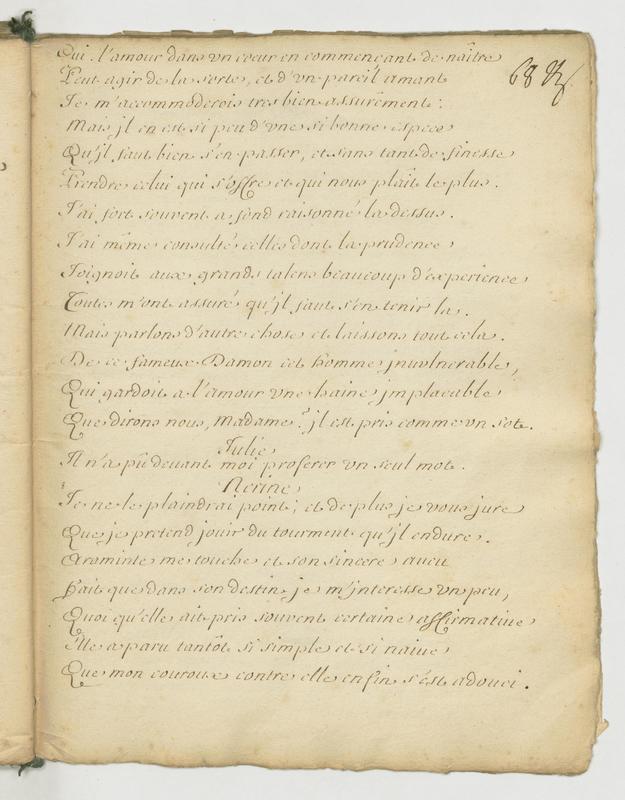 Oui. l'amour dans un cœur en commençant de naître
Peut agir de la sorte, et d'un pareil amant
Je m'accommoderois tres bien assurément.
Mais jl en est si peu d'une si bonne espece
Qu'jl faut bien s'en passer, et sans tant de finesse
Prendre celui qui s'offre et qui nous plait le plus.
J'ai fort souvent a fond raisonné la dessus.
J'ai même consulté celles dont la prudence
Joignoit aux grands talens beaucoup d'experience
Toutes m'ont assuré qu'jl faut s'en tenir la.
Mais parlons d'autre chose et laissons tout cela.
De ce fameux Damon cet homme jnvulnerable,
Qui gardoit a l'amour une haine jmplacable
Que dirons nous, Madame? jl est pris comme un sot.
Julie
Il n'a pû devant moi proferer un seul mot.
Nerine
Je ne le plaindrai point; et de plus je vous jure
Que je pretend jouir du tourment qu'jl endure.
Araminte me touche et son sincere aveu
Fait que dans son destin je m'jnteresse un peu,
Quoi qu'elle ait pris souvent certaine affirmative
Elle a paru tantôt si simple et si naive
Que mon couroux contre elle enfin s'est adouci.
68